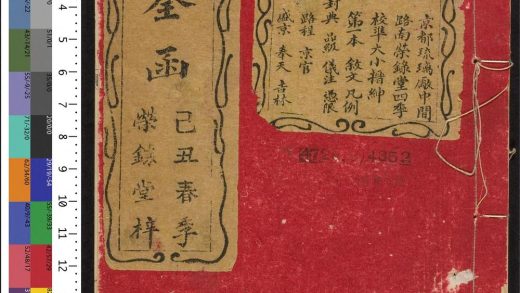 京都琉璃廠中間
路南榮錄堂四季
校準大小搢紳
第一本 敘文 凡例
封典 品級 儀注 憑限
路程 京官
盛京 奉天 吉林
全函
己丑春季
榮錄堂梓
4
5
6
7
8
9
10
11
12